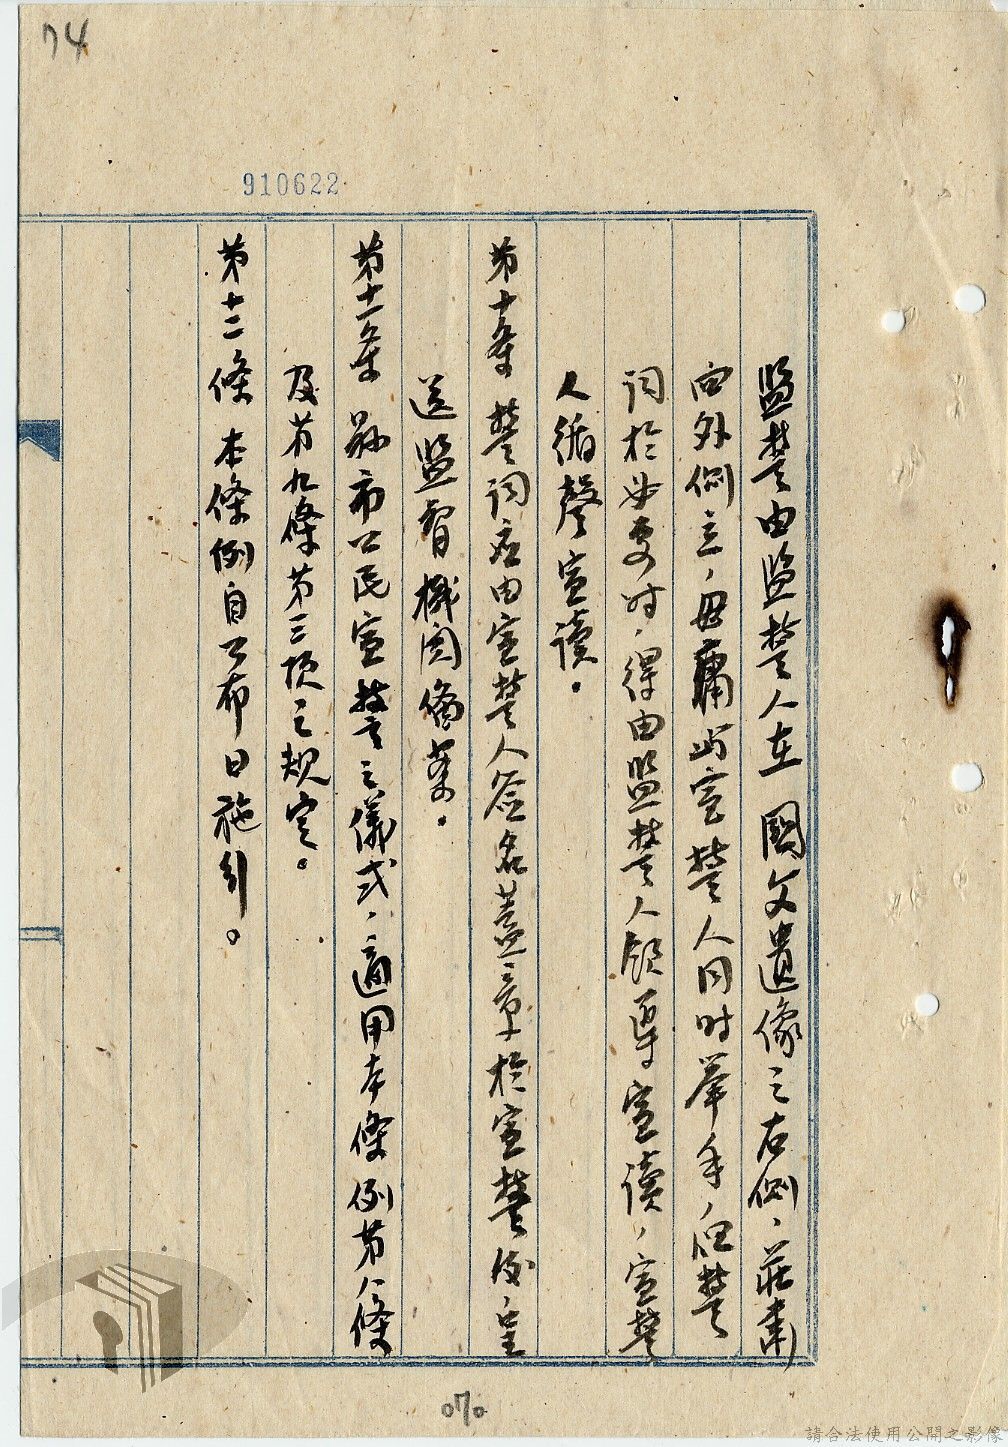 74
910622
监誓由监誓人在 國父遺像之右側、莊肅
向外側立，毋庸与宣誓人同时举手，但誓
词於必要时，得由监誓人領导宣读，宣誓
人循聲宣读。
第十条 誓词应由宣誓人签名蓋章於宣誓後，呈
送监督機関備案。
第十一条 縣市公民宣誓之儀式，適用本條例第八條
及第九條第三項之規定。
第十二條 本條例自公布日施行。
070
請合法使用公開之影像